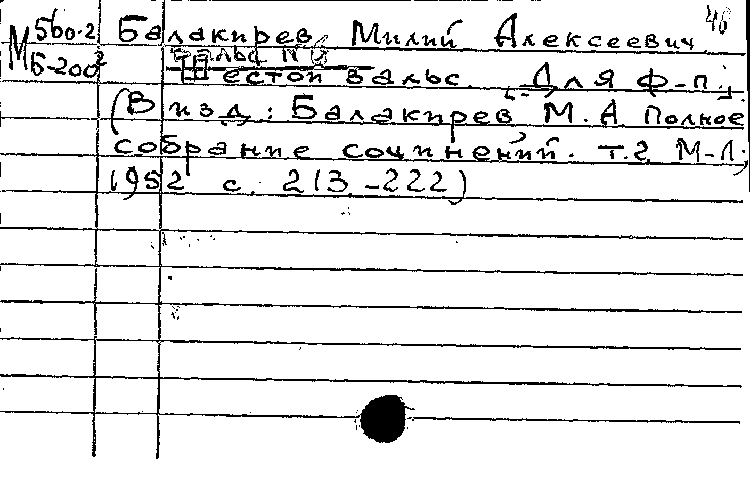 М 560-2
Б-200²
48
Балакирев Милий Алексеевич
Вальс N 6
Шестой вальс. [Для ф-п.]
(В изд.: Балакирев М.А Полное
собрание сочинений. т.2 М-Л;
1952 с. 213-222)